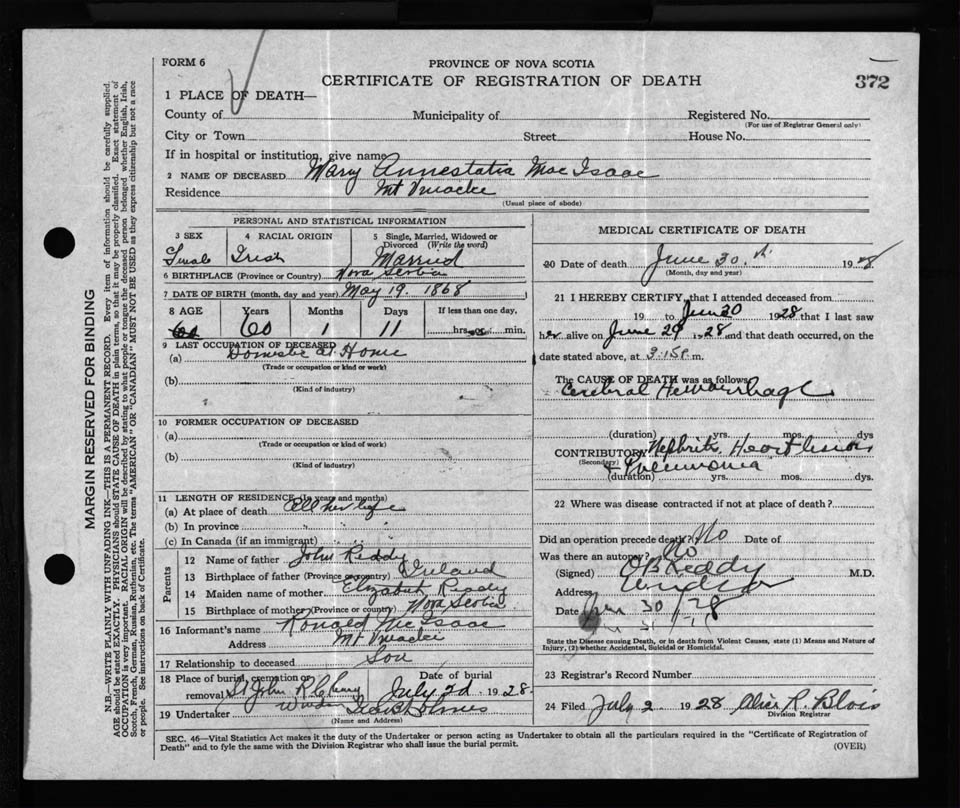 FORM 6
PROVINCE OF NOVA SCOTIA
CERTIFICATE OF REGISTRATION OF DEATH
372
1 PLACE OF DEATH—
County of Municipality of Registered No.
(For use of Registrar General only)
City or Town Street House No.
If in hospital or institution, give name
2 NAME OF DECEASED Mary Annestatia Mac Isaac
Residence Mt Uniacke
(Usual place of abode)
PERSONAL AND STATISTICAL INFORMATION
3 SEX 4 RACIAL ORIGIN 5 Single, Married, Widowed or Divorced (Write the word)
Female Irish Married
6 BIRTHPLACE (Province or Country) Nova Scotia
7 DATE OF BIRTH (month, day and year) May 19. 1868
8 AGE Years Months Days If less than one day,
60 1 11 hrs. or min.
9 LAST OCCUPATION OF DECEASED
(a) Domestic at Home
(Trade or occupation or kind of work)
(b)
(Kind of industry)
10 FORMER OCCUPATION OF DECEASED
(a)
(Trade or occupation or kind of work)
(b)
(Kind of industry)
11 LENGTH OF RESIDENCE (In years and months)
(a) At place of death All her life
(b) In province " " "
(c) In Canada (if an immigrant) " " "
Parents
12 Name of father John Reddy
13 Birthplace of father (Province or country) Ireland
14 Maiden name of mother Elizabeth Reddy
15 Birthplace of mother (Province or country) Nova Scotia
16 Informant's name Ronald Mc Isaac
Address Mt Uniacke
17 Relationship to deceased Son
18 Place of burial, cremation or removal Date of burial
St John R C July 2d 1928.
19 Undertaker
(Name and Address)
MEDICAL CERTIFICATE OF DEATH
20 Date of death June 30.th 1928
(Month, day and year)
21 I HEREBY CERTIFY, that I attended deceased from
19 to 1928 that I last saw
her alive on June 29 1928 and that death occurred, on the
date stated above, at 3.15 P. m.
The CAUSE OF DEATH was as follows:
Cerebral Hemorrhage
(duration) yrs. mos. dys
CONTRIBUTORY Nephritis Heart
(Secondary) & Pneumonia
(duration) yrs. mos. dys.
22 Where was disease contracted if not at place of death?
Did an operation precede death? No Date of
Was there an autopsy? No
(Signed) Reddy M.D.
Address Windsor
Date 30 /28
State the Disease causing Death, or in death from Violent Causes, state (1) Means and Nature of
Injury, (2) whether Accidental, Suicidal or Homicidal.
23 Registrar's Record Number
24 Filed July 2 1928 Alice R. Blois
Division Registrar
SEC. 46—Vital Statistics Act makes it the duty of the Undertaker or person acting as Undertaker to obtain all the particulars required in the "Certificate of Registration of
Death" and to fyle the same with the Division Registrar who shall issue the burial permit.
(OVER)
MARGIN RESERVED FOR BINDING
N.B.—WRITE PLAINLY WITH UNFADING INK—THIS IS A PERMANENT RECORD. Every item of information should be carefully supplied.
AGE should be stated EXACTLY. PHYSICIANS should STATE CAUSE OF DEATH in plain terms, so that it may be properly classified. Exact statement of
OCCUPATION is very important. RACIAL ORIGIN will be described by stating to what people or tongue the deceased person belonged whether English, Irish,
Scotch, French, German, Russian, Ruthenian, etc. The terms "AMERICAN" OR "CANADIAN" MUST NOT BE USED as they express citizenship but not a race
or people. See instructions on back of Certificate.